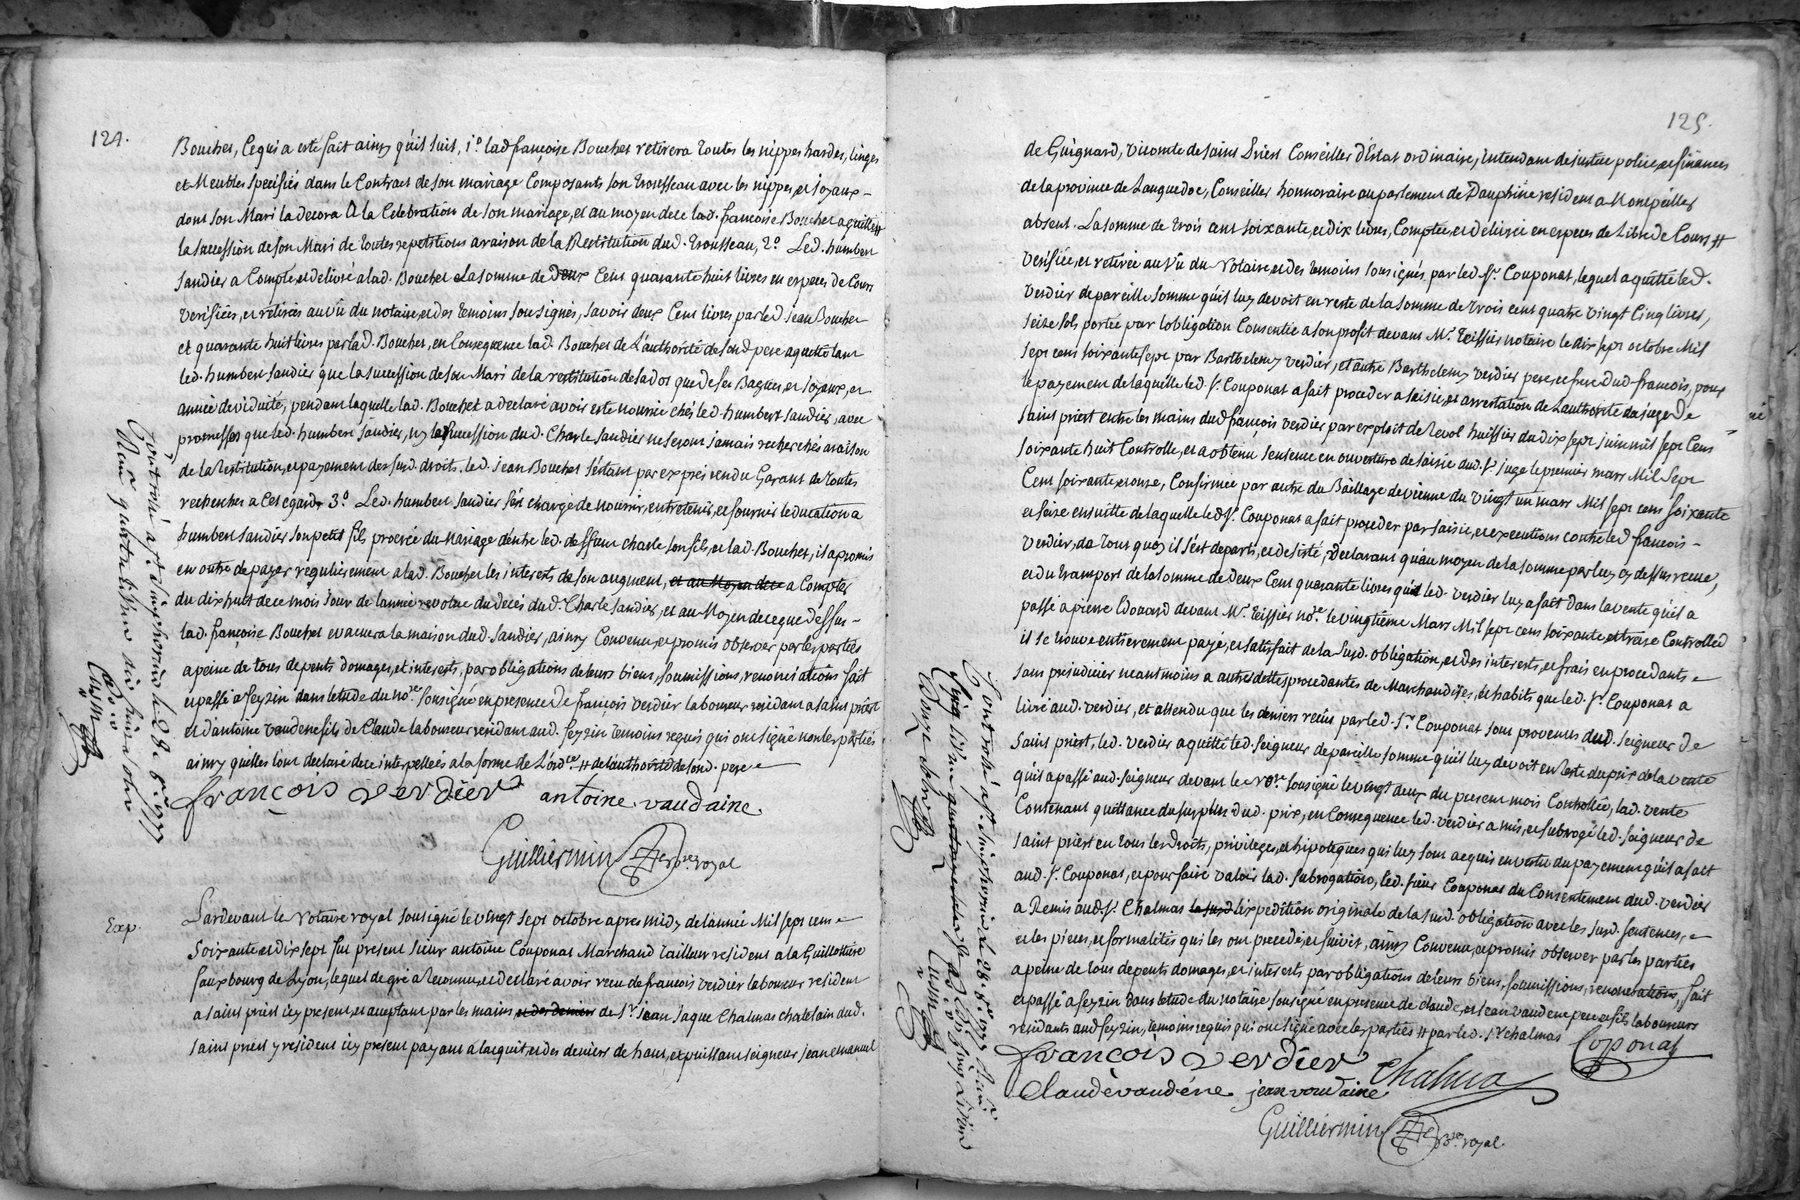 124.
Bouchet, Ce qui a esté fait ainsy qu'il suit, 1.º lad françoise Bouchet retirera toutes les nippes hardes, linges
et Meubles specifiés dans le Contract de son mariage Composants son trousseau avec les nippes, et joyaux-
dont son Mari la decora a la Celebration de son mariage, et au moyen de ce lad. françoise Bouchet a quitté #
la succession de son Mari de toutes repetitions a raison de la Restitution dud. trousseau, 2.º Led. humbert
Sandier a Compté, et delivré a lad. Bouchet La somme de deux Cent quarante huit livres en especes de Cours
verifiées, et retirées au vû du notaire, et des temoins sousignés, savoir deux Cent livres par led jean Bouchet
et quarante huit livres par lad. Bouchet, en Consequence lad. Bouchet de L'authorité de sond pere a quitté tant
led. humbert Sandier que la succession de son Mari de la restitution de sa dot que de ses Bagues, et joyaux, et
année de viduité, pendant laquelle lad. Bouchet a declaré avoir esté nourrie chés led. humbert Sandier, avec
promesses que led. humbert Sandier, ny la succession dud. Charle Sandier ne seront jamais recherchés a raison
de la Restitution, et payement des susd. droits. led. jean Bouchet s'estant par exprés rendu Garant de toutes
recherches a Cet egard 3.º Led. humbert Sandier s'est chargé de nourrir, entretenir, et fournir l'education a
humbert Sandier son petit fils procréé du Mariage d'entre led. deffunt charle son fils, et lad. Bouchet, il a promis
en outre de payer regulierement a lad. Bouchet les interests de son augment, et au moyen de ce a Compter
du dix huit de ce mois jour de l'année revolue du decés dud. Charle Sandier, et au Moyen de ce que dessus-
lad. françoise Bouchet evacuera la maison dud. Sandier, ainsy Convenu, et promis observer par les parties
a peine de tous depents domages, et interests, par obligations de leurs biens, soumissions, renonciations fait
et passé a feyzin dans l'etude du no.re sousigné en presence de françois verdier laboureur residant a saint priest
et d'antoine vaudene fils de Claude laboureur residant aud. feyzin temoins requis qui ont signé non les parties
ainsy qu'elles l'ont declaré de ce interpellées a la forme de L'ord.ce # de l'authorité de sond. pere
françois verdier antoine vaudaine
Guilliermin no.re royal
Controllé a s.t simphorien le 28 8.bre 1777
Reçu quatre livres dix huit sols
Cusin
Exp.
Pardevant le Notaire royal sousigné le vingt sept octobre apres midy de l'année Mil sept cent
Soixante et dix sept fut present sieur antoine Couponat Marchand tailleur resident a la Guillottiere
fauxbourg de Lyon, lequel de gré a reconnu, et declaré avoir recu de francois verdier laboureur resident
a saint priest icy present, et acceptant par les mains et des deniers de S.r jean jaque Chalmas chatelain dud.
saint priest y resident icy present payant a l'acquit, et des deniers de haut, et puissant seigneur jean emanuel
125.
de Guignard, vicomte de saint Priest Conseiller d'Estat ordinaire, Intendant de justice police, et finances
de la province de Languedoc, Conseiller honnoraire au parlement de Dauphiné resident a Montpellier
absent. La somme de trois cent soixante, et dix livres, Comptée, et delivrée en especes de Libre Cours #
verifiée, et retirée au Vû du Notaire, et des temoins sousignés par led S.r Couponat, lequel a quitté led.
verdier de pareille somme qu'il luy devoit en reste de la somme de trois cent quatre vingt Cinq livres,
seize sols portée par l'obligation Consentie a son profit devant M.e teissier notaire le dix sept octobre Mil
sept cent soixante sept par Barthelemy verdier, et autre Barthelemy verdier pere, et frere dud francois, pour
le payement de laquelle led. S.r Couponat a fait proceder a saisie, et arrestation de L'authorité du juge de
saint priest entre les mains dud françois verdier par exploit de Revol huissier du dix sept juin mil sept Cent
soixante huit Controllé, et a obtenu sentence en ouverture de saisie dud. S.r juge le premier mars Mil Sept
Cent soixante et onze, Confirmée par autre du Bailliage de vienne du vingt un mars Mil sept cent soixante
et seize ensuitte de laquelle led S.r Couponat a fait proceder par saisie, et executions contre led francois-
verdier, de tout quoy il s'est departi, et desisté, Declarant qu'au moyen de la somme par luy cy dessus recue,
et du transport de la somme de deux Cent quarante livres qu'il led. verdier luy a fait dans la vente qu'il a
passé a pierre Edouard devant M.e teissier no.re le vingtième Mars Mil sept cens soixante et treize Controllée
il se trouve entierement payé, et satisfait de la susd. obligation, et des interests, et frais en procedants
sans prejudicier neantmoins a autres dettes procedantes de Marchandises, et habits que led. S.r Couponat a
livré aud. verdier, et attendu que les deniers recûs par led. S.r Couponat sont provenus dud. Seigneur de
Saint priest, led. verdier a quitté led. seigneur de pareille somme qu'il luy devoit en reste du prix de la vente
qu'il a passé aud. Seigneur devant le No.re sousigné le vingt deux du present mois Controllée, lad. vente
Contenant quittance du surplus dud. prix, en Consequence led. verdier a mis, et subrogé led. seigneur de
saint priest en tous les droits, privileges, et hipoteques qui luy sont acquis en vertu du payement qu'il a fait
aud. S.r Couponat, et pour faire valoir lad. subrogation, led. sieur Couponat du Consentement dud. verdier
a Remis aud. S.r Chalmas la susd l'expedition originale de la susd. obligation avec les susd. sentences,
et les pieces, et formalités qui les ont precedé, et suivit, ainsy Convenu, et promis observer par les parties
a peine de tous depents domages, et interests par obligations de leurs biens, soumissions, renonciations, fait
et passé a feyzin dans l'etude du notaire sousigné en presence de claude, et jean vaudene pere, et fils laboureurs
residants aud feyzin, temoins requis qui ont signé avec les parties # par led. S.r Chalmas
Coponat
françois verdier Chalmas
Claude vaudéne jean voudaine
Guilliermin no.re royal
Controllé a s.t simphorien le 28 8.bre 1777
Cusin